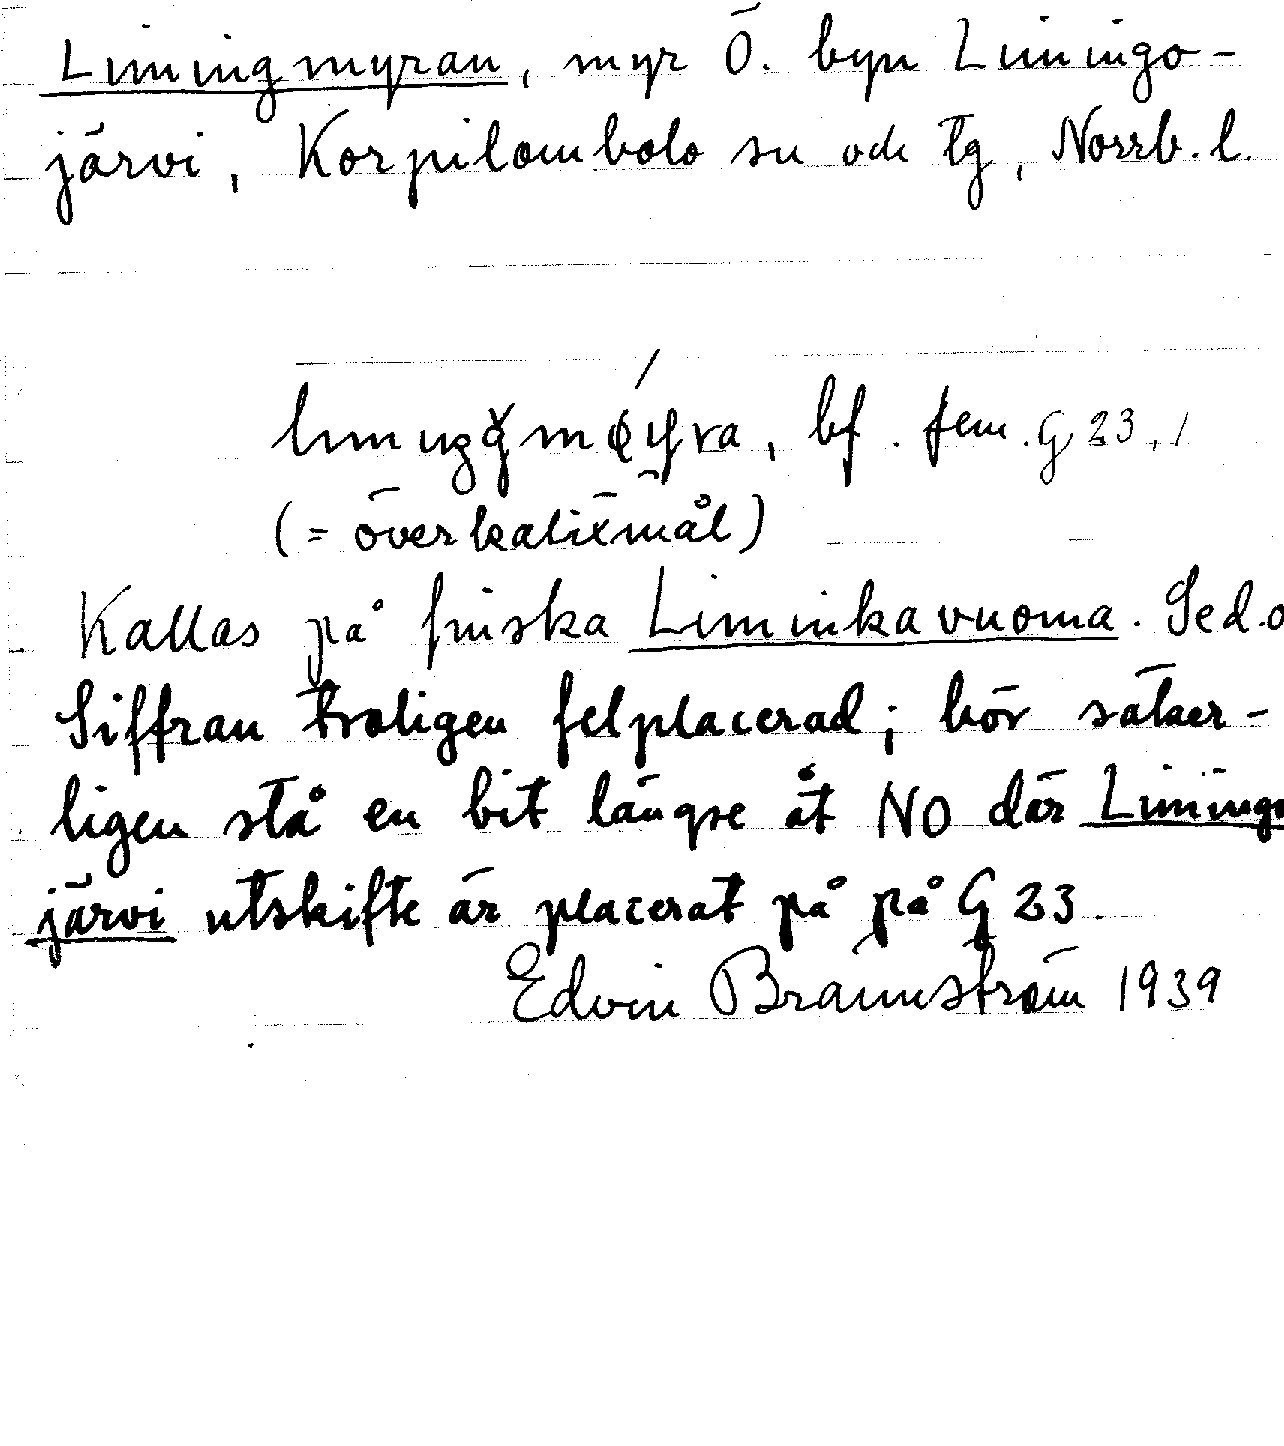 Liiningmyran, myr Ö. byn Liiningo-
järvi, Korpilombolo sn och tg, Norrb. l.
bf. fem. G 23, 1
(= överkalixmål)
Kallas på finska Liminkavuoma. Se d.o
Siffran troligen felplacerad; bör säker-
ligen stå en bit längre åt NO där Liiningo
järvi utskifte är placerat på på G 23.
Edvin Brännström 1939